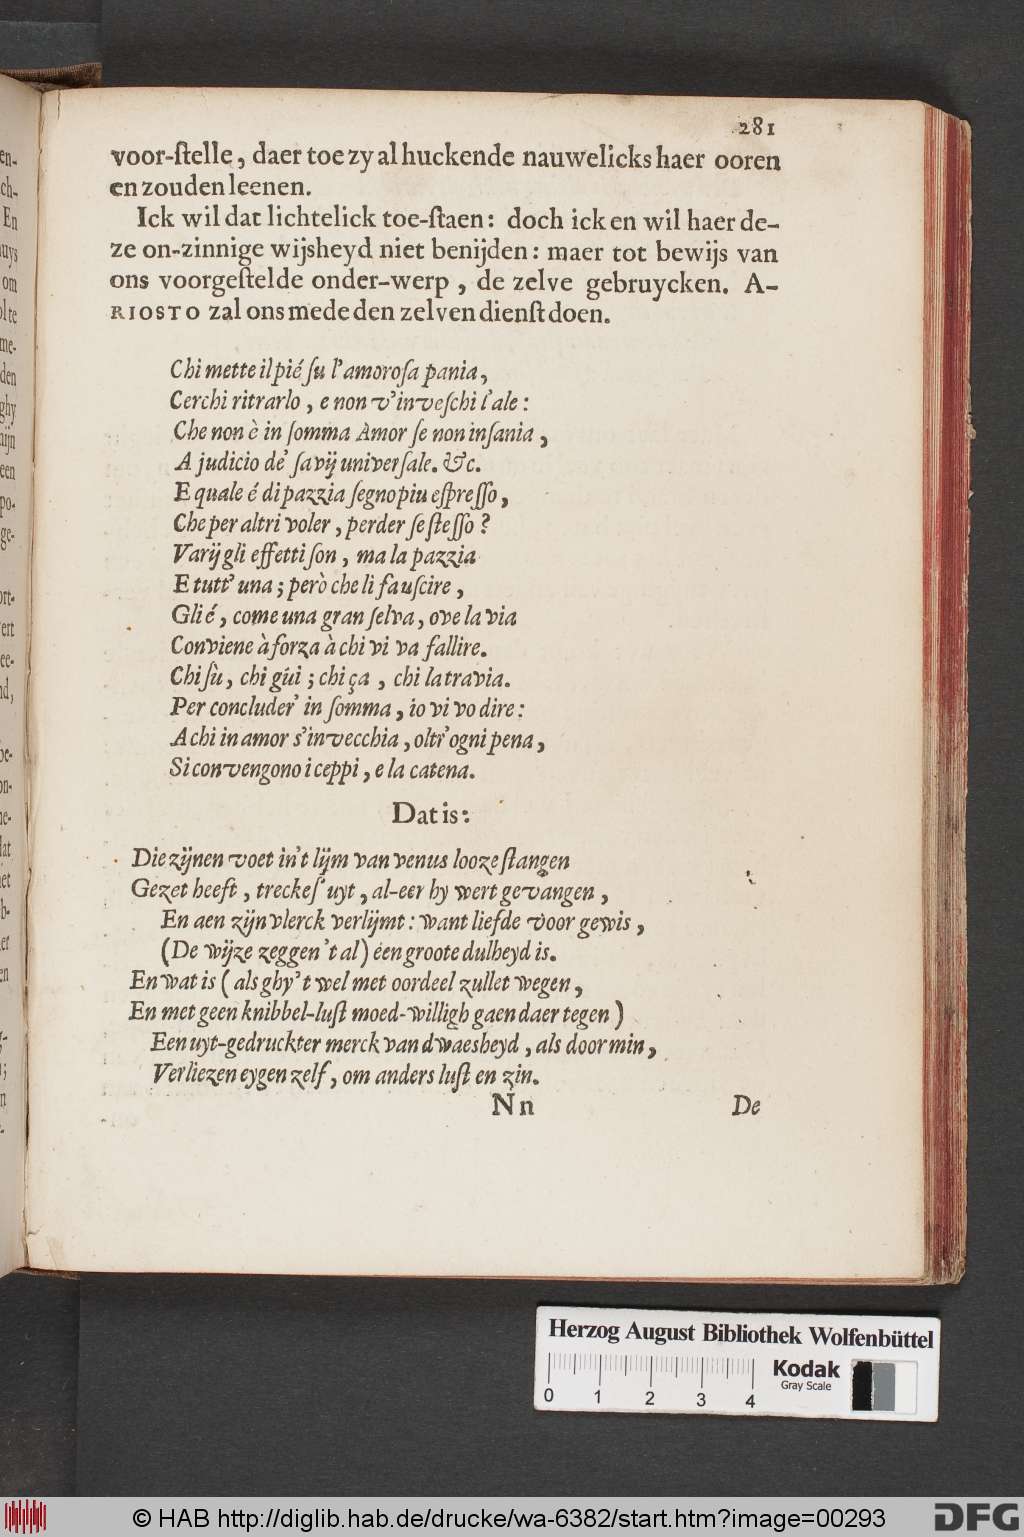 281
voor-ſtelle, daer toe zy al huckende nauwelicks haer ooren
en zouden leenen.
Ick wil dat lichtelick toe-ſtaen: doch ick en wil haer de-
ze on-zinnige wijsheyd niet benijden: maer tot bewijs van
ons voorgeſtelde onder-werp, de zelve gebruycken. A-
RIOSTO zal ons mede den zelven dienſt doen.
Chi mette il pié ſu l'amoroſa pania,
Cerchi ritrarlo, e non v'inveſchi l'ale:
Che non è in ſomma Amor ſe non inſania,
A judicio de' ſavij univerſale. &c.
E quale é di pazzia ſegno piu eſpreſſo,
Che per altri voler, perder ſe ſteſſo?
Varij gli effetti ſon, ma la pazzia
E tutt' una; però che li fa uſcire,
Gli é, come una gran ſelva, ove la via
Conviene à forza à chi vi va fallire.
Chi ſù, chi gúi; chi ça, chi la travia.
Per concluder' in ſomma, io vi vo dire:
A chi in amor s'invecchia, oltr'ogni pena,
Si convengono i ceppi, e la catena.
Dat is:
Die zijnen voet in't lijm van venus looze ſtangen
Gezet heeft, treckeſ' uyt, al-eer hy wert gevangen,
En aen zijn vlerck verlijmt: want liefde voor gewis,
(De wijze zeggen 't al) een groote dulheyd is.
En wat is (als ghy't wel met oordeel zullet wegen,
En met geen knibbel-luſt moed-willigh gaen daer tegen)
Een uyt-gedruckter merck van dwaesheyd, als door min,
Verliezen eygen zelf, om anders luſt en zin.
Nn De
Herzog August Bibliothek Wolfenbüttel
Kodak
Gray Scale
0 1 2 3 4
© HAB http://diglib.hab.de/drucke/wa-6382/start.htm?image=00293
DFG